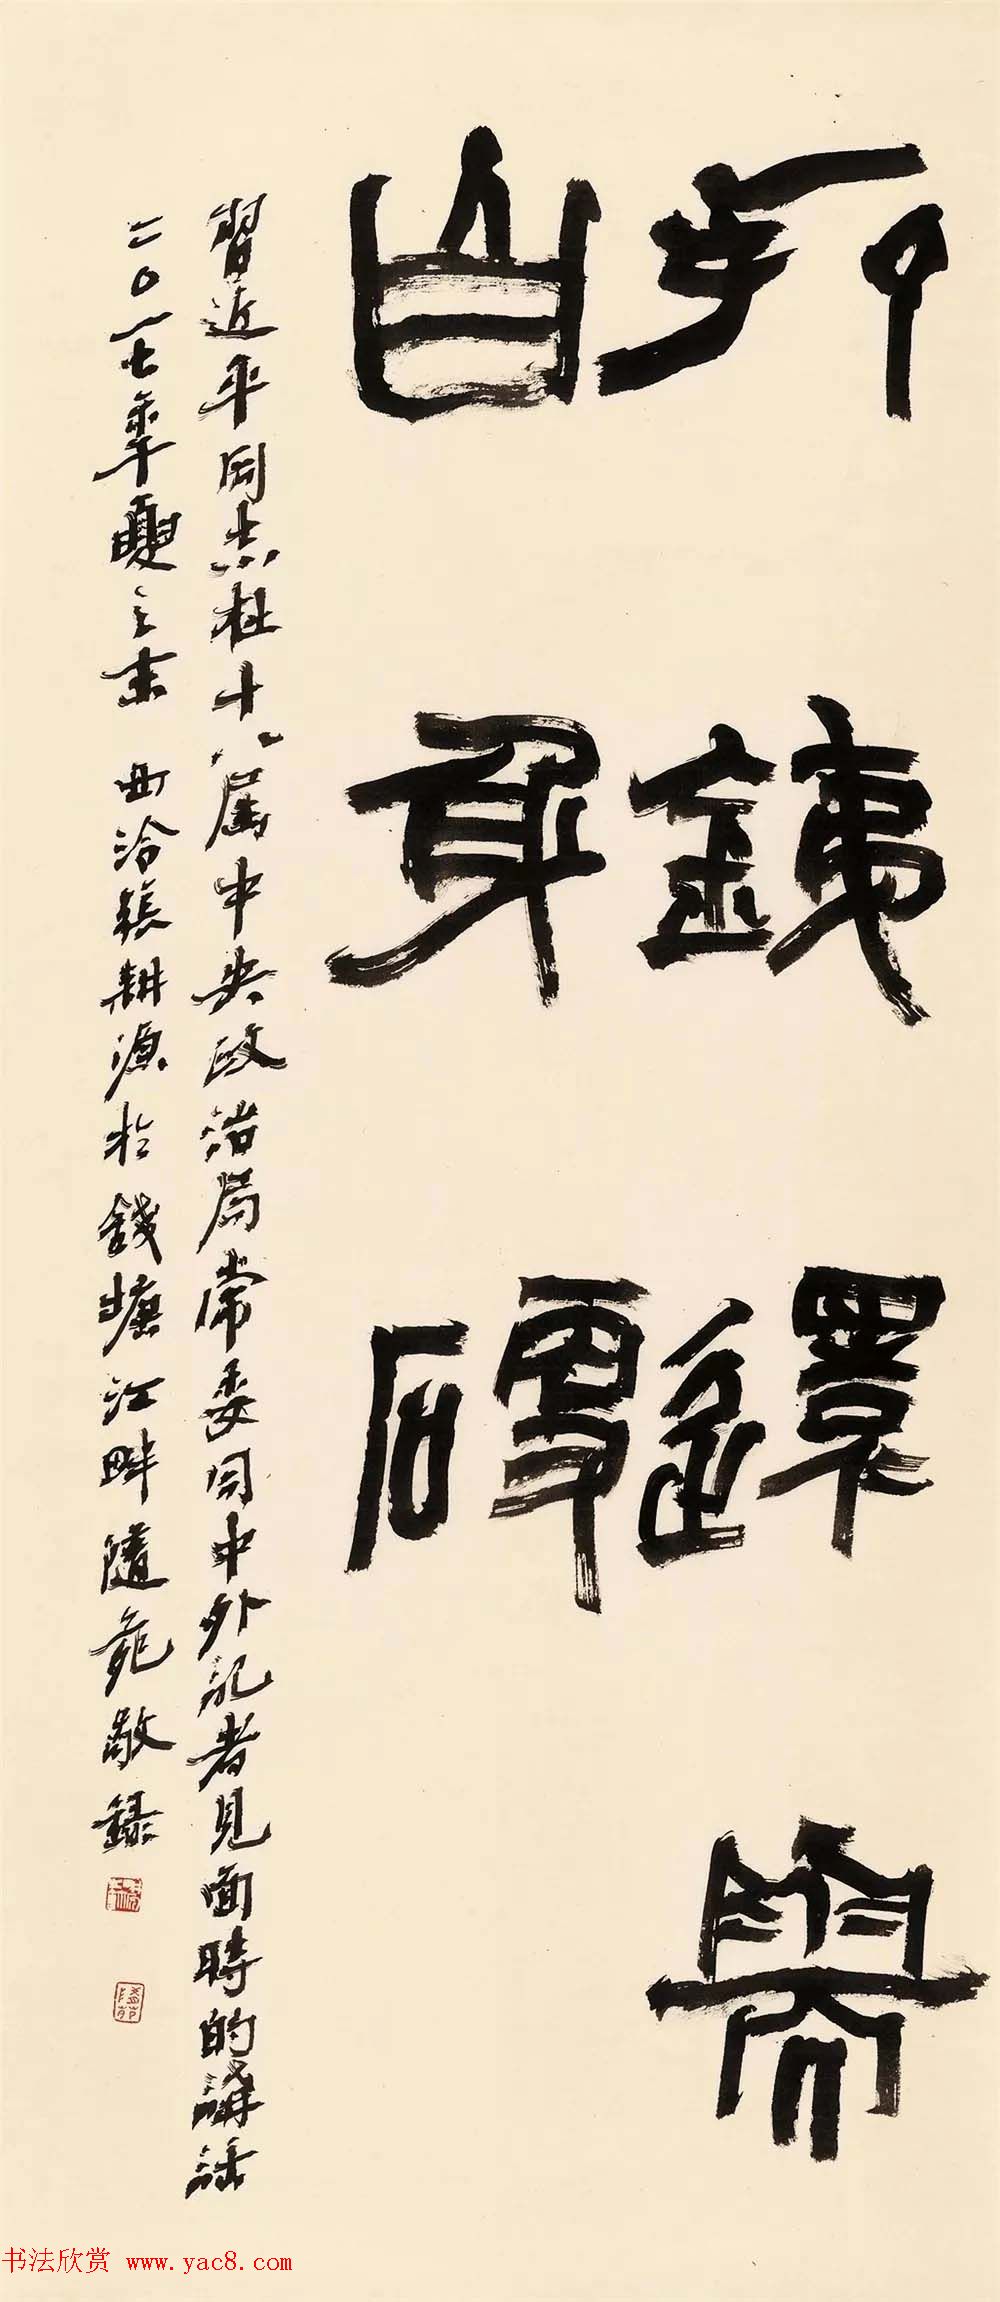 打銕還需
自身硬
習近平同志在十八屆中央政治局常委同中外記者見面時的講話
二〇一七年夏之末 西泠張耕源於錢塘江畔隨苑敬錄
书法欣赏 www.yac8.com